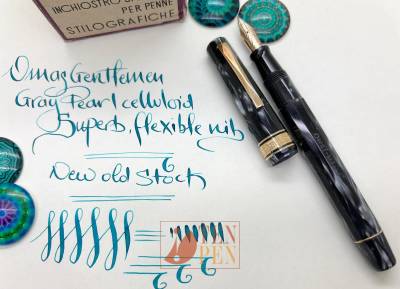 INCHIOSTRO
PER PENNE
STILOGRAFICHE
Omas Gentlemen
Gray Pearl celluloid
Superb, flexible nib
New old Stock
YEN
PEN